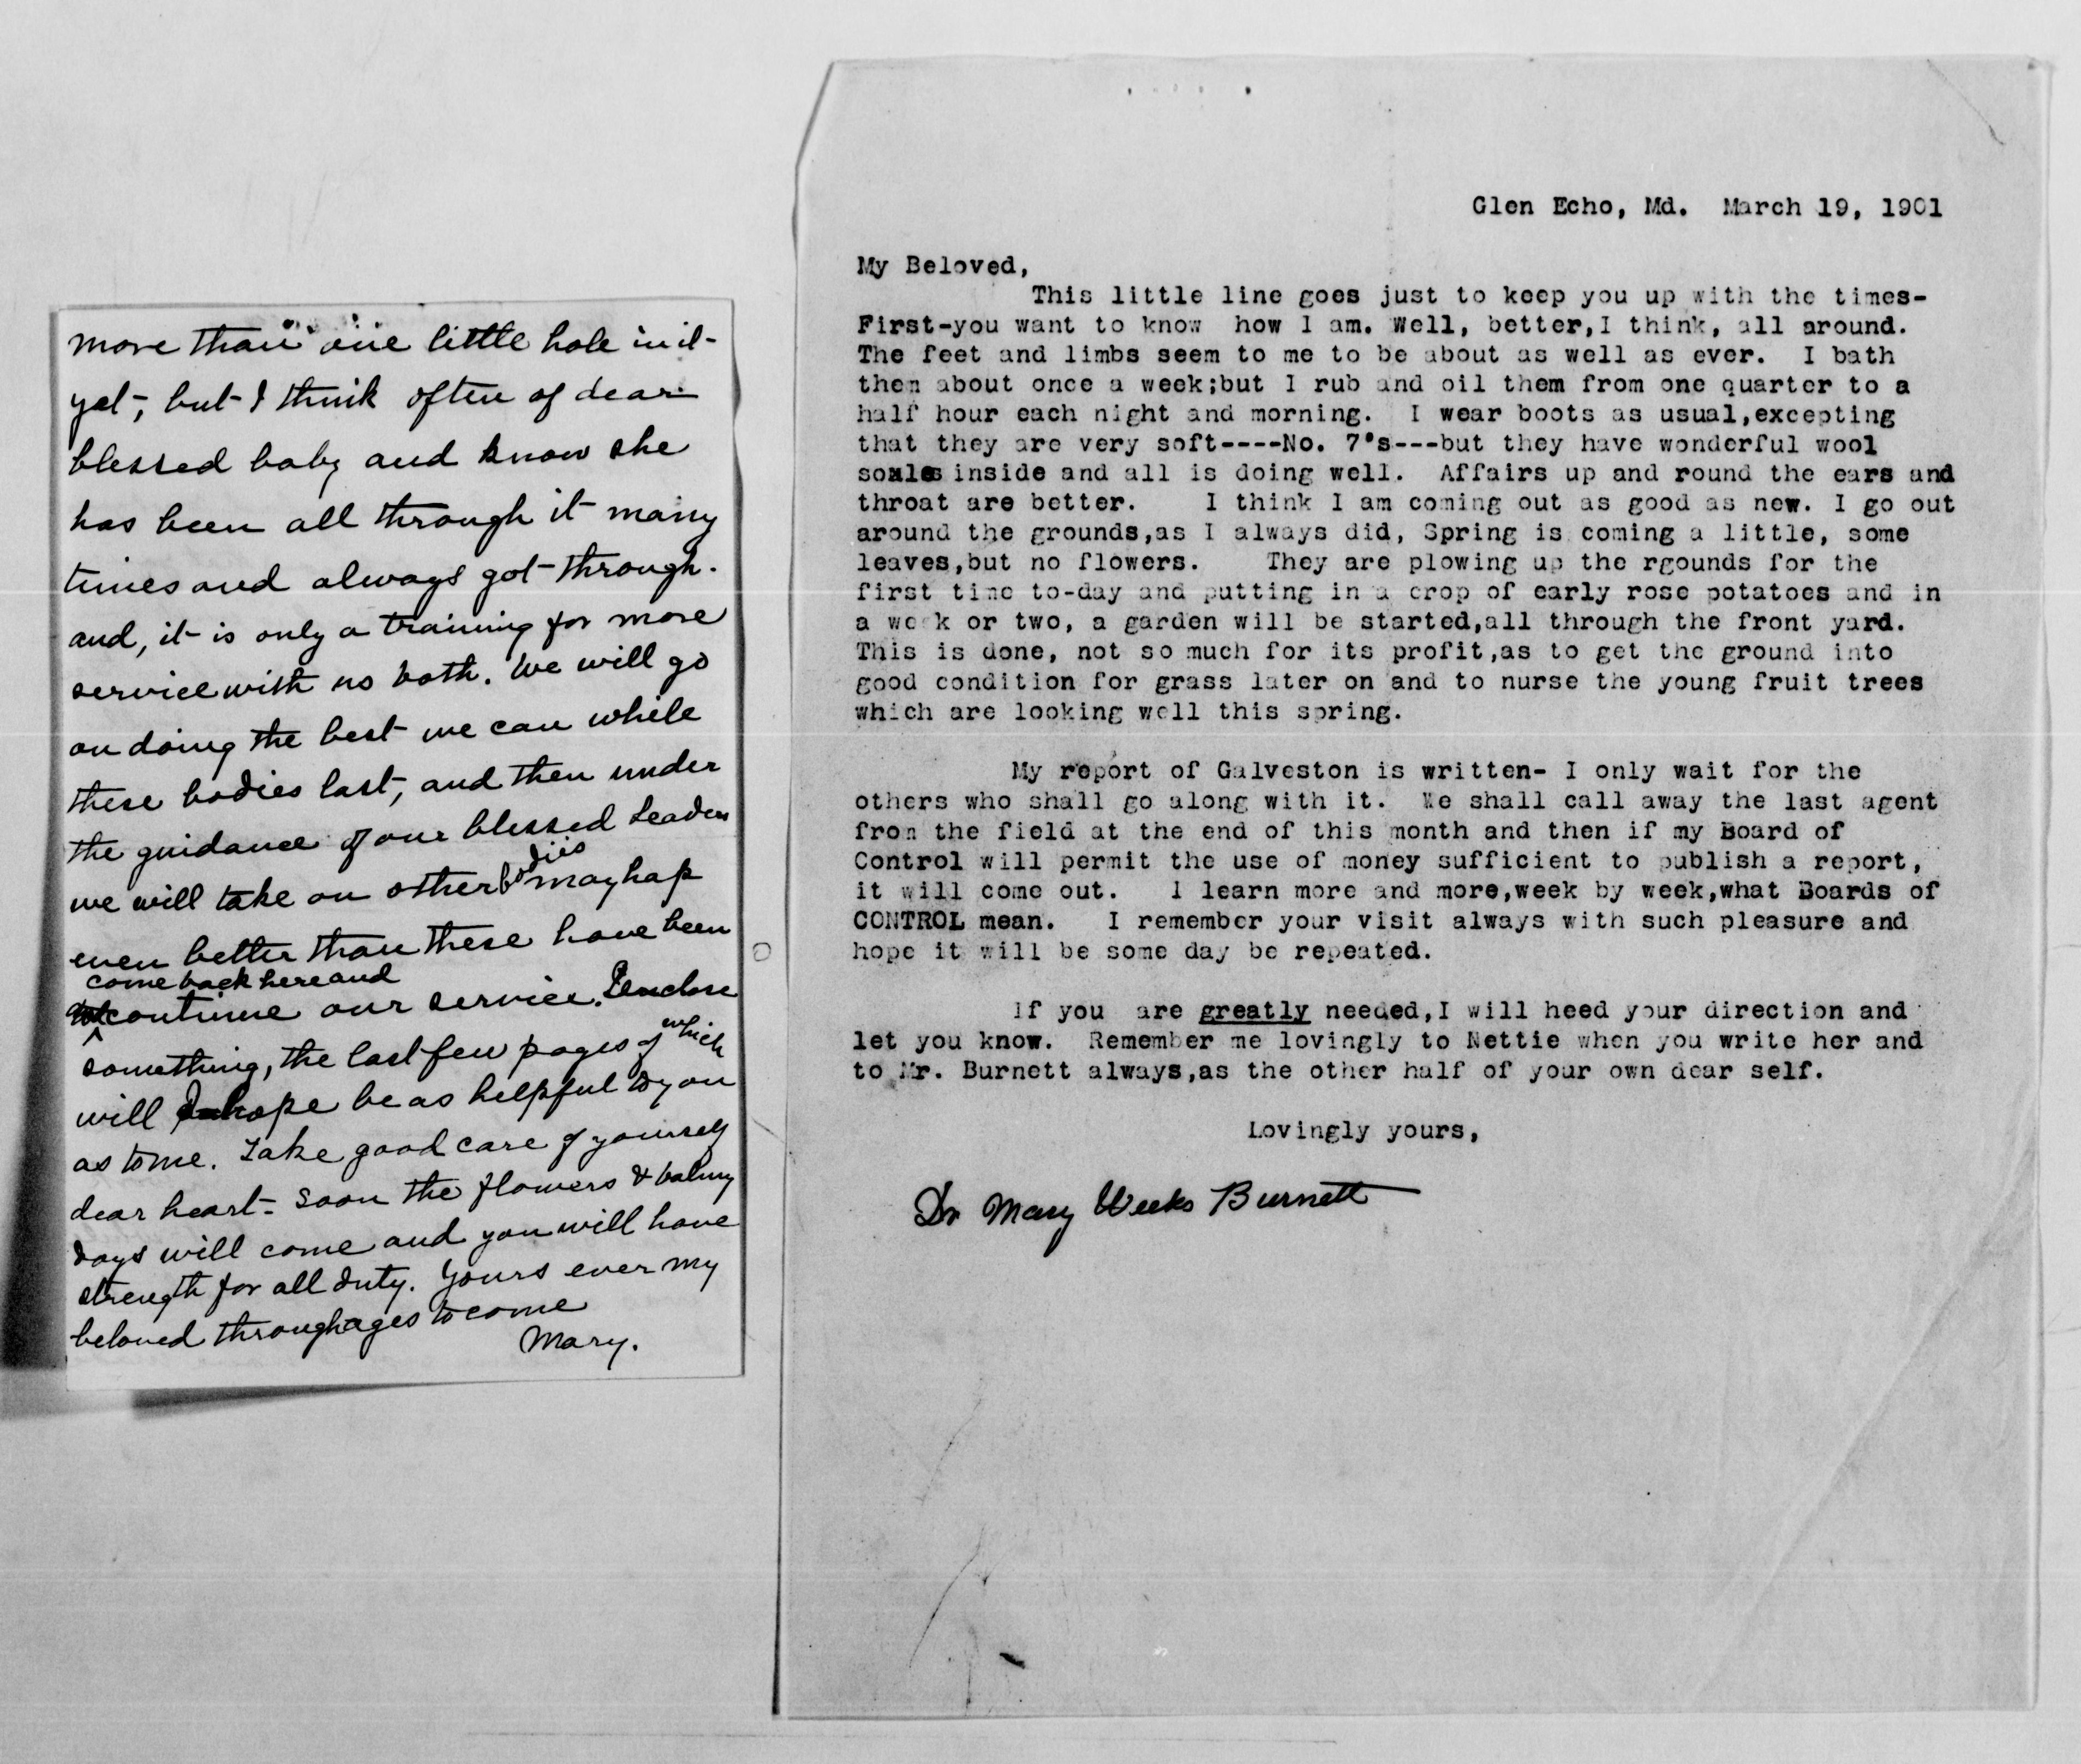 more than one little hole in it
yet, but I think often of dear
blessed baby and know she
has been all through it many
times and always got through.
and, it is only a training for more
service with us both. We will go
on doing the best we can while
these bodies last, and then under
the guidance of our blessed Leader
we will take on other bodies mayhap
even better than these have been
come back here and
continue our service. I enclose
something, the last few pages of which
will I hope be as helpful to you
as to me. Take good care of yourself
dear heart - soon the flowers & balmy
days will come and you will have
strength for all duty. Yours ever my
beloved through ages to come
Mary.
Glen Echo, Md. March 19, 1901
My Beloved,
This little line goes just to keep you up with the times-
First-you want to know how I am. Well, better,I think, all around.
The feet and limbs seem to me to be about as well as ever. I bath
them about once a week;but I rub and oil them from one quarter to a
half hour each night and morning. I wear boots as usual,excepting
that they are very soft----No. 7's---but they have wonderful wool
soales inside and all is doing well. Affairs up and round the ears and
throat are better. I think I am coming out as good as new. I go out
around the grounds,as I always did, Spring is coming a little, some
leaves,but no flowers. They are plowing up the rgounds for the
first time to-day and putting in a crop of early rose potatoes and in
a week or two, a garden will be started,all through the front yard.
This is done, not so much for its profit,as to get the ground into
good condition for grass later on and to nurse the young fruit trees
which are looking well this spring.
My report of Galveston is written- I only wait for the
others who shall go along with it. We shall call away the last agent
from the field at the end of this month and then if my Board of
Control will permit the use of money sufficient to publish a report,
it will come out. I learn more and more,week by week,what Boards of
CONTROL mean. I remember your visit always with such pleasure and
hope it will be some day be repeated.
If you are greatly needed,I will heed your direction and
let you know. Remember me lovingly to Nettie when you write her and
to Mr. Burnett always,as the other half of your own dear self.
Lovingly yours,
Dr Mary Weeks Burnett